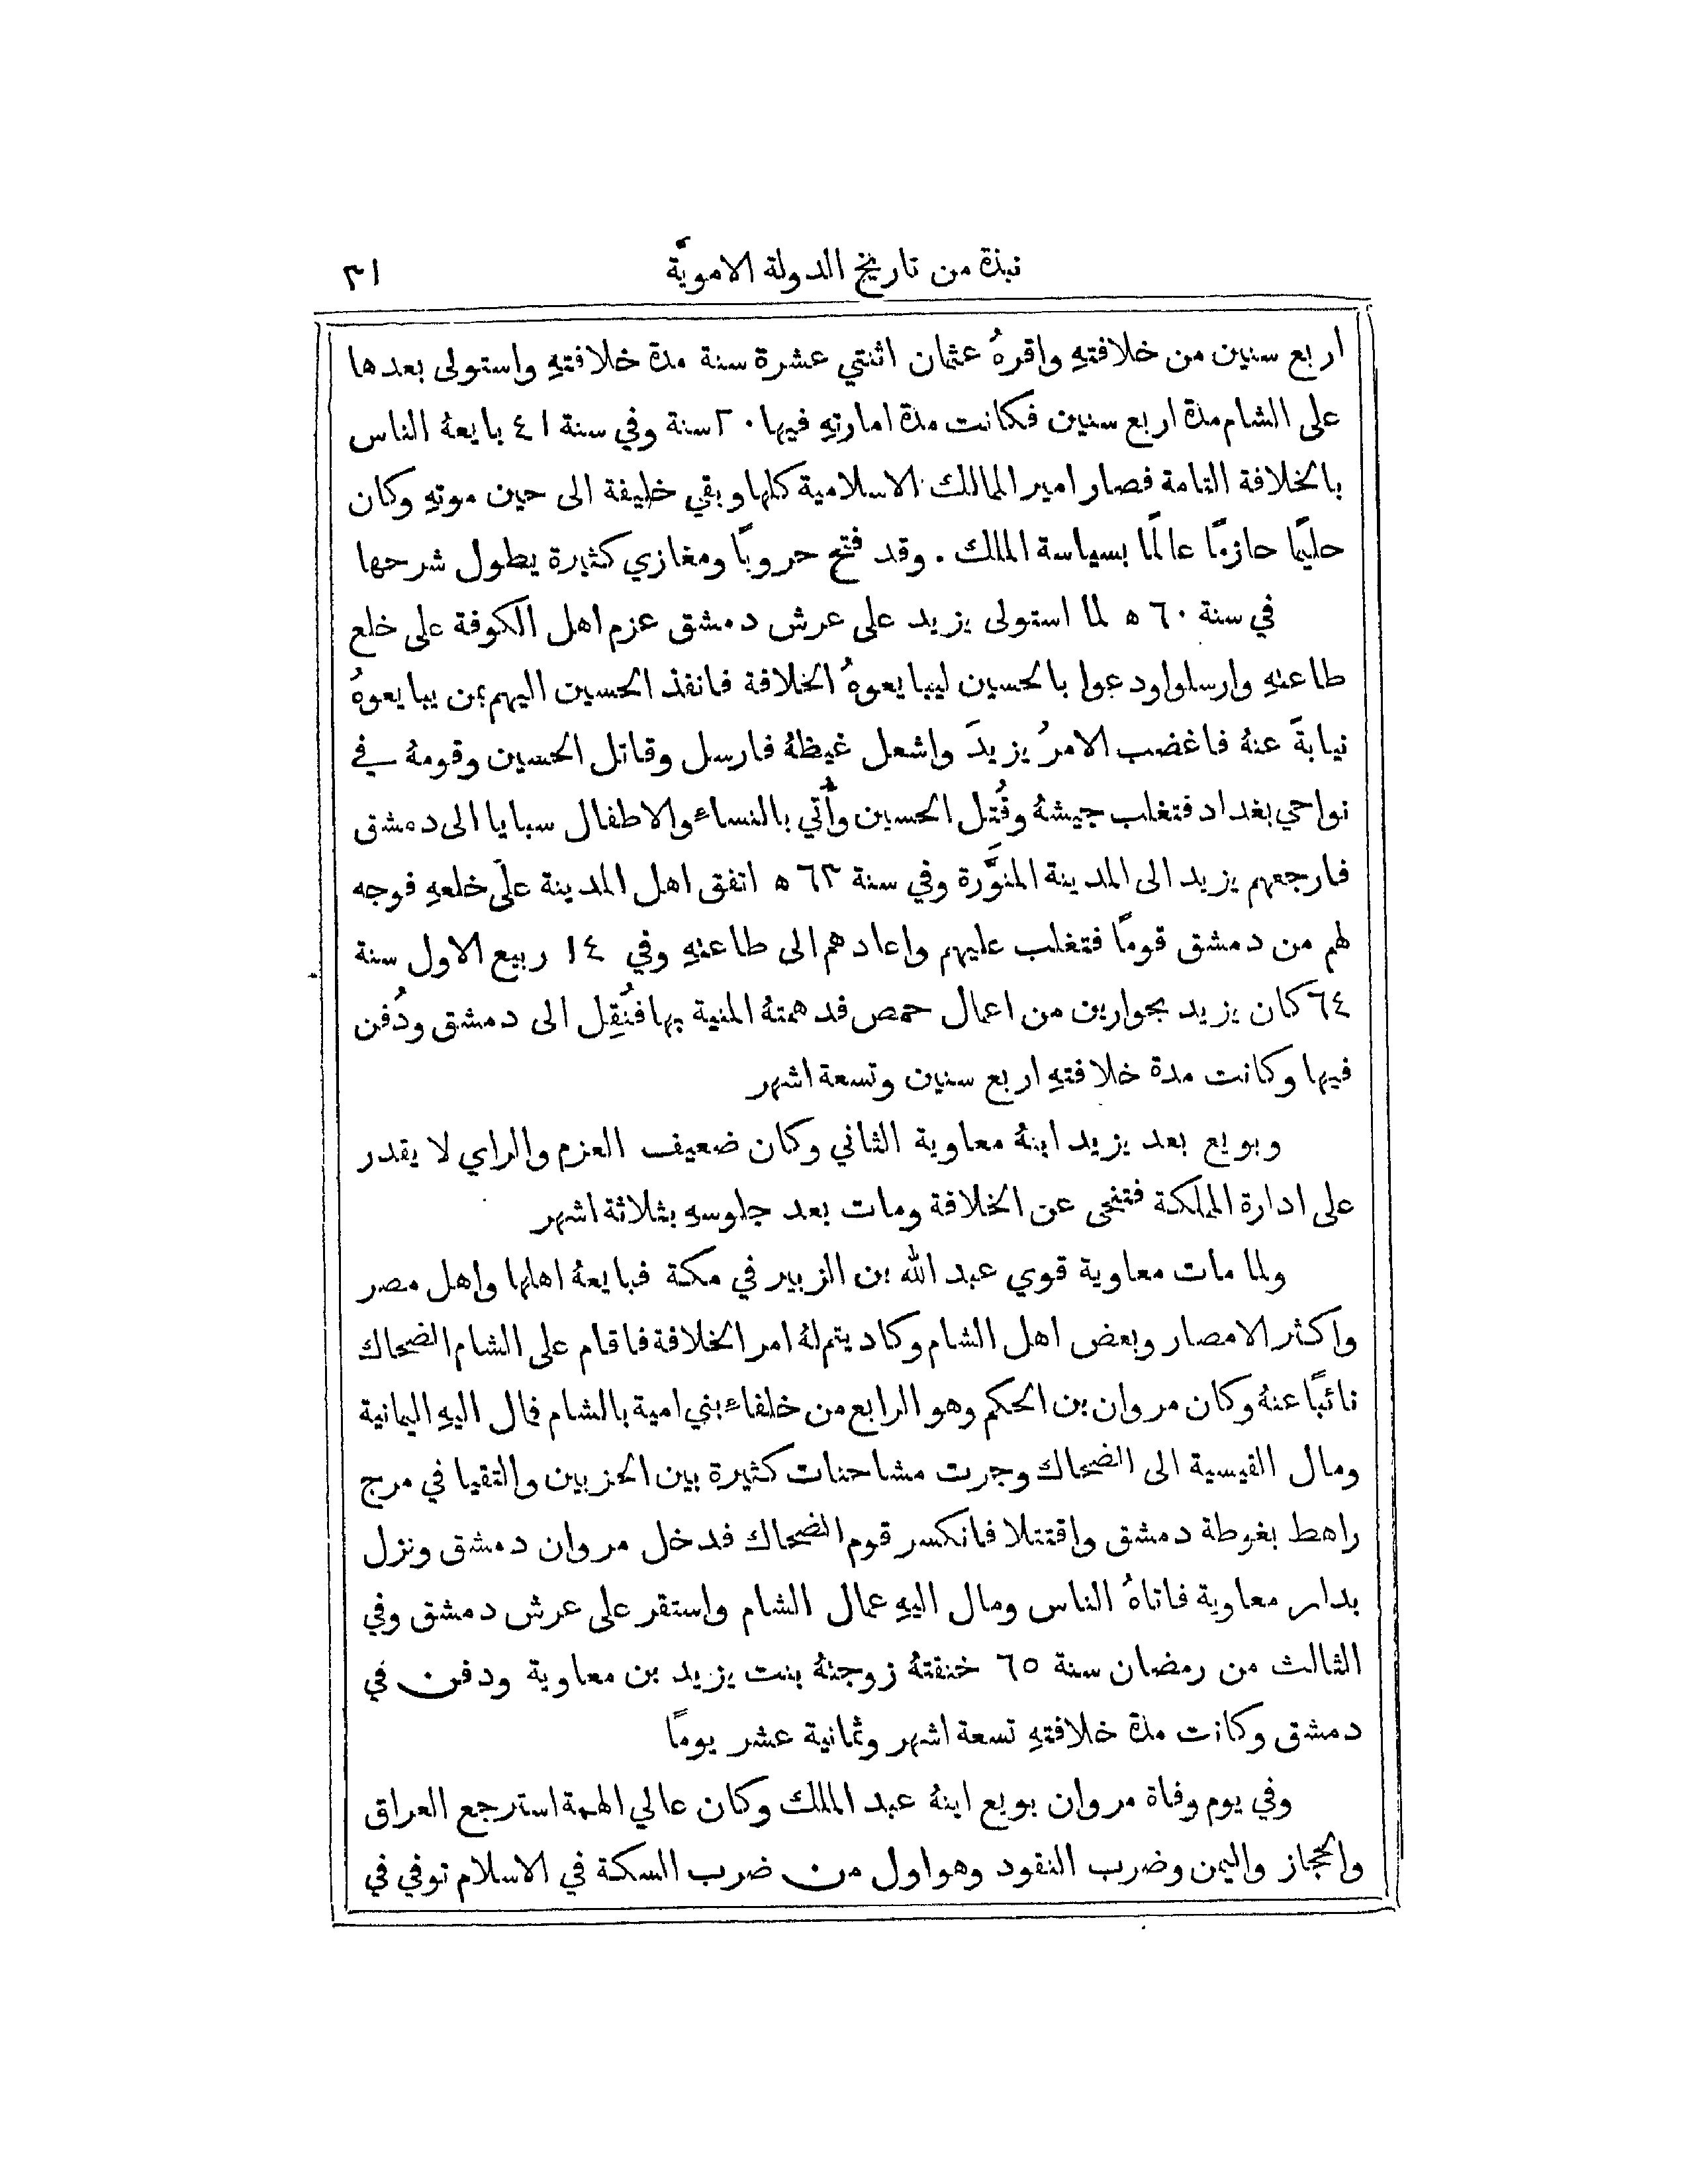 نبذة من تاريخ الدولة الامويَّة ٣١
اربع سنين من خلافتهِ واقرهُ عثمان اثنتي عشرة سنة مدة خلافتهِ واستولى بعدها
على الشام مدة اربع سنين فكانت مدة امارتهِ فيها ٢٠ سنة وفي سنة ٤١ بايعهُ الناس
بالخلافة التامة فصار امير الممالك الاسلامية كلها وبقي خليفة الى حين موتهِ وكان
حليمًا حازمًا عالمًا بسياسة الملك . وقد فتح حروبًا ومغازي كثيرة يطول شرحها
في سنة ٦٠ ه لما استولى يزيد على عرش دمشق عزم اهل الكوفة على خلع
طاعتهِ وارسلوا ودعوا بالحسين ليبايعوهُ الخلافة فانفذ الحسين اليهم بمن يبايعوهُ
نيابةً عنهُ فاغضب الامرُ يزيدَ واشعل غيظهُ فارسل وقاتل الحسين وقومهُ في
نواحي بغداد فتغلب جيشهُ وقُتل الحسين وأُتي بالنساء والاطفال سبايا الى دمشق
فارجعهم يزيد الى المدينة المنوَّرة وفي سنة ٦٣ ه اتفق اهل المدينة على خلعهِ فوجه
لهم من دمشق قومًا فتغلب عليهم واعادهم الى طاعتهِ وفي ١٤ ربيع الاول سنة
٦٤ كان يزيد بجوارين من اعمال حمص فدهمتهُ المنية بها فنُقِل الى دمشق ودُفن
فيها وكانت مدة خلافتهِ اربع سنين وتسعة اشهر
وبويع بعد يزيد ابنهُ معاوية الثاني وكان ضعيف العزم والراي لا يقدر
على ادارة المملكة فتنحى عن الخلافة ومات بعد جلوسهِ بثلاثة اشهر
ولما مات معاوية قوي عبد الله بن الزبير في مكة فبايعهُ اهلها واهل مصر
واكثر الامصار وبعض اهل الشام وكاد يتم لهُ امر الخلافة فاقام على الشام الضحاك
نائبًا عنهُ وكان مروان بن الحكم وهو الرابع من خلفاء بني امية بالشام فمال اليهِ اليمانية
ومال القيسية الى الضحاك وجرت مشاحنات كثيرة بين الحزبين والتقيا في مرج
راهط بغوطة دمشق واقتتلا فانكسر قوم الضحاك فدخل مروان دمشق ونزل
بدار معاوية فاتاهُ الناس ومال اليهِ عمال الشام واستقر على عرش دمشق وفي
الثالث من رمضان سنة ٦٥ خنقتهُ زوجتهُ بنت يزيد بن معاوية ودفن في
دمشق وكانت مدة خلافتهِ تسعة اشهر وثمانية عشر يومًا
وفي يوم وفاة مروان بويع ابنهُ عبد الملك وكان عالي الهمة استرجع العراق
والحجاز واليمن وضرب النقود وهو اول من ضرب السكة في الاسلام توفي في